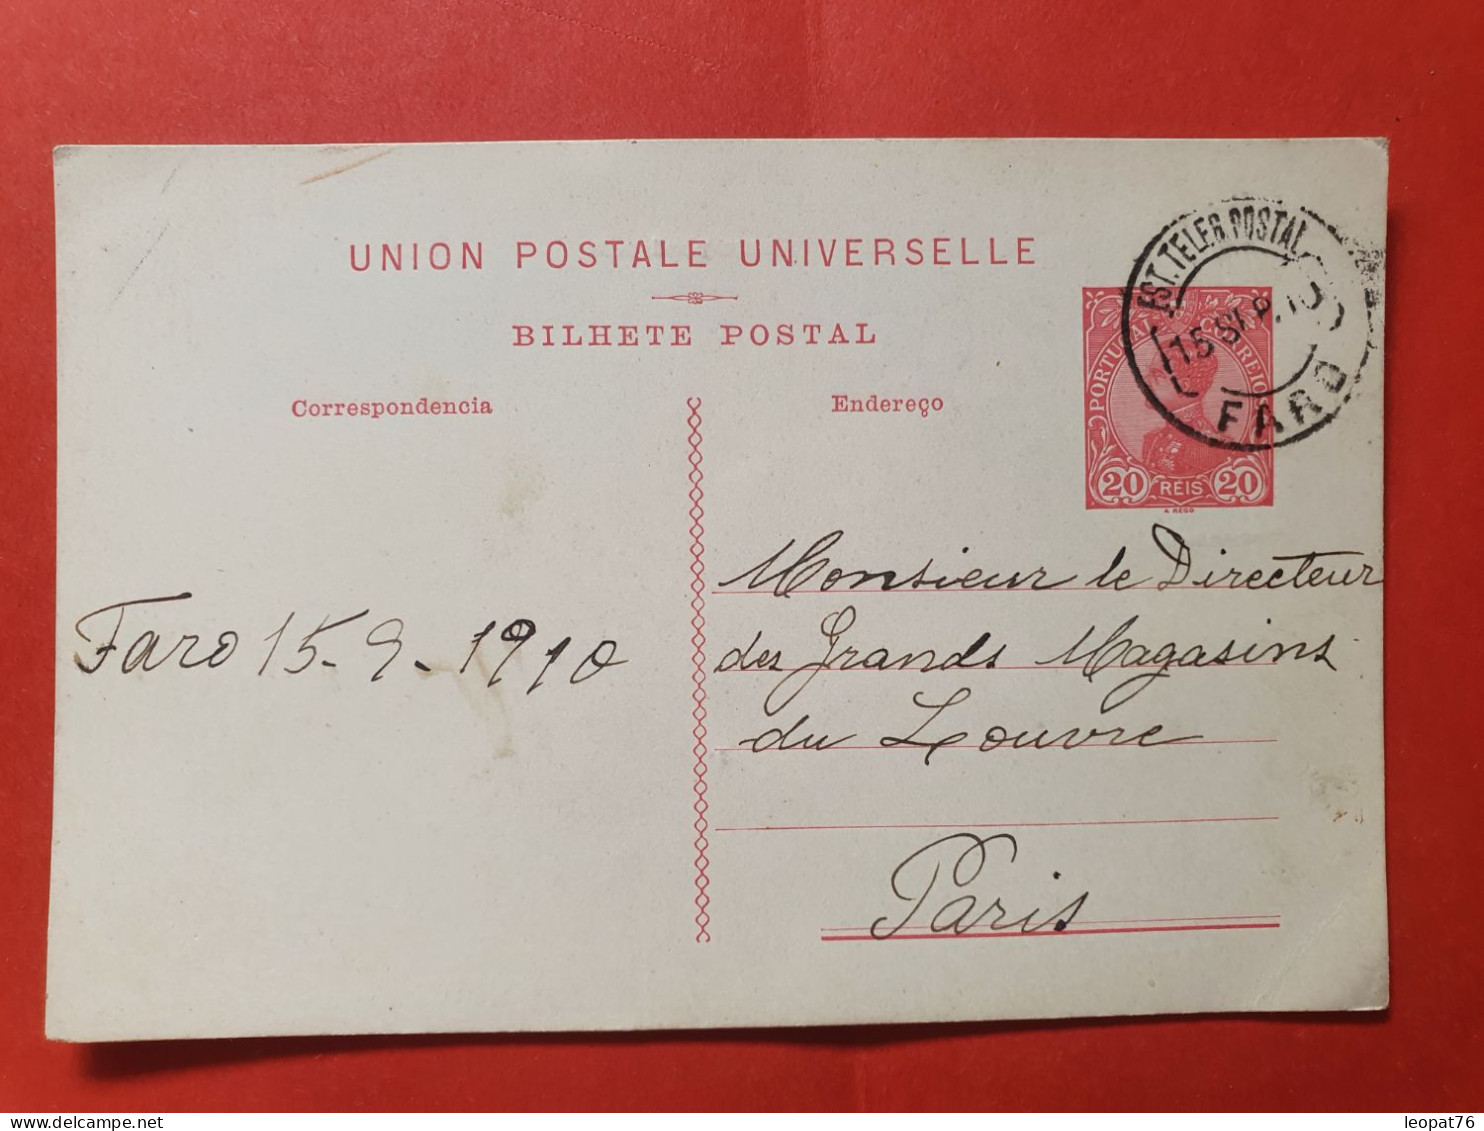 UNION POSTALE UNIVERSELLE
BILHETE POSTAL
Correspondencia
Endereço
EST. TELEG. POSTAL
FARO
PORTUGAL CORREIO
20 REIS 20
Monsieur le Directeur
des Grands Magasins
du Louvre
Paris
Faro 15-9-1910
leopat76